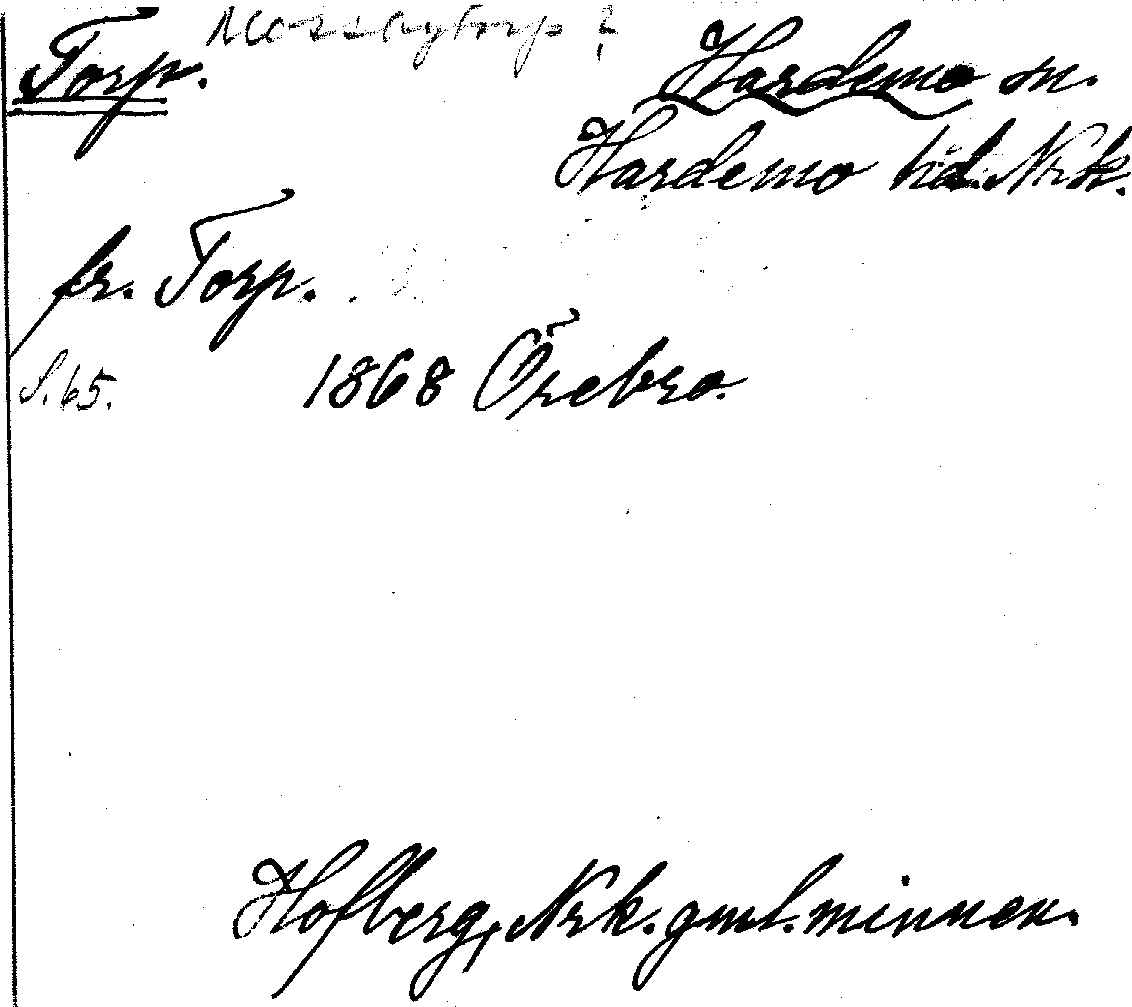 Torp. Hardemo sn.
Hardemo hd. Nrk.
fr. Torp.
S. 65. 1868 Örebro.
Hofberg, Nrk. gml. minnen.